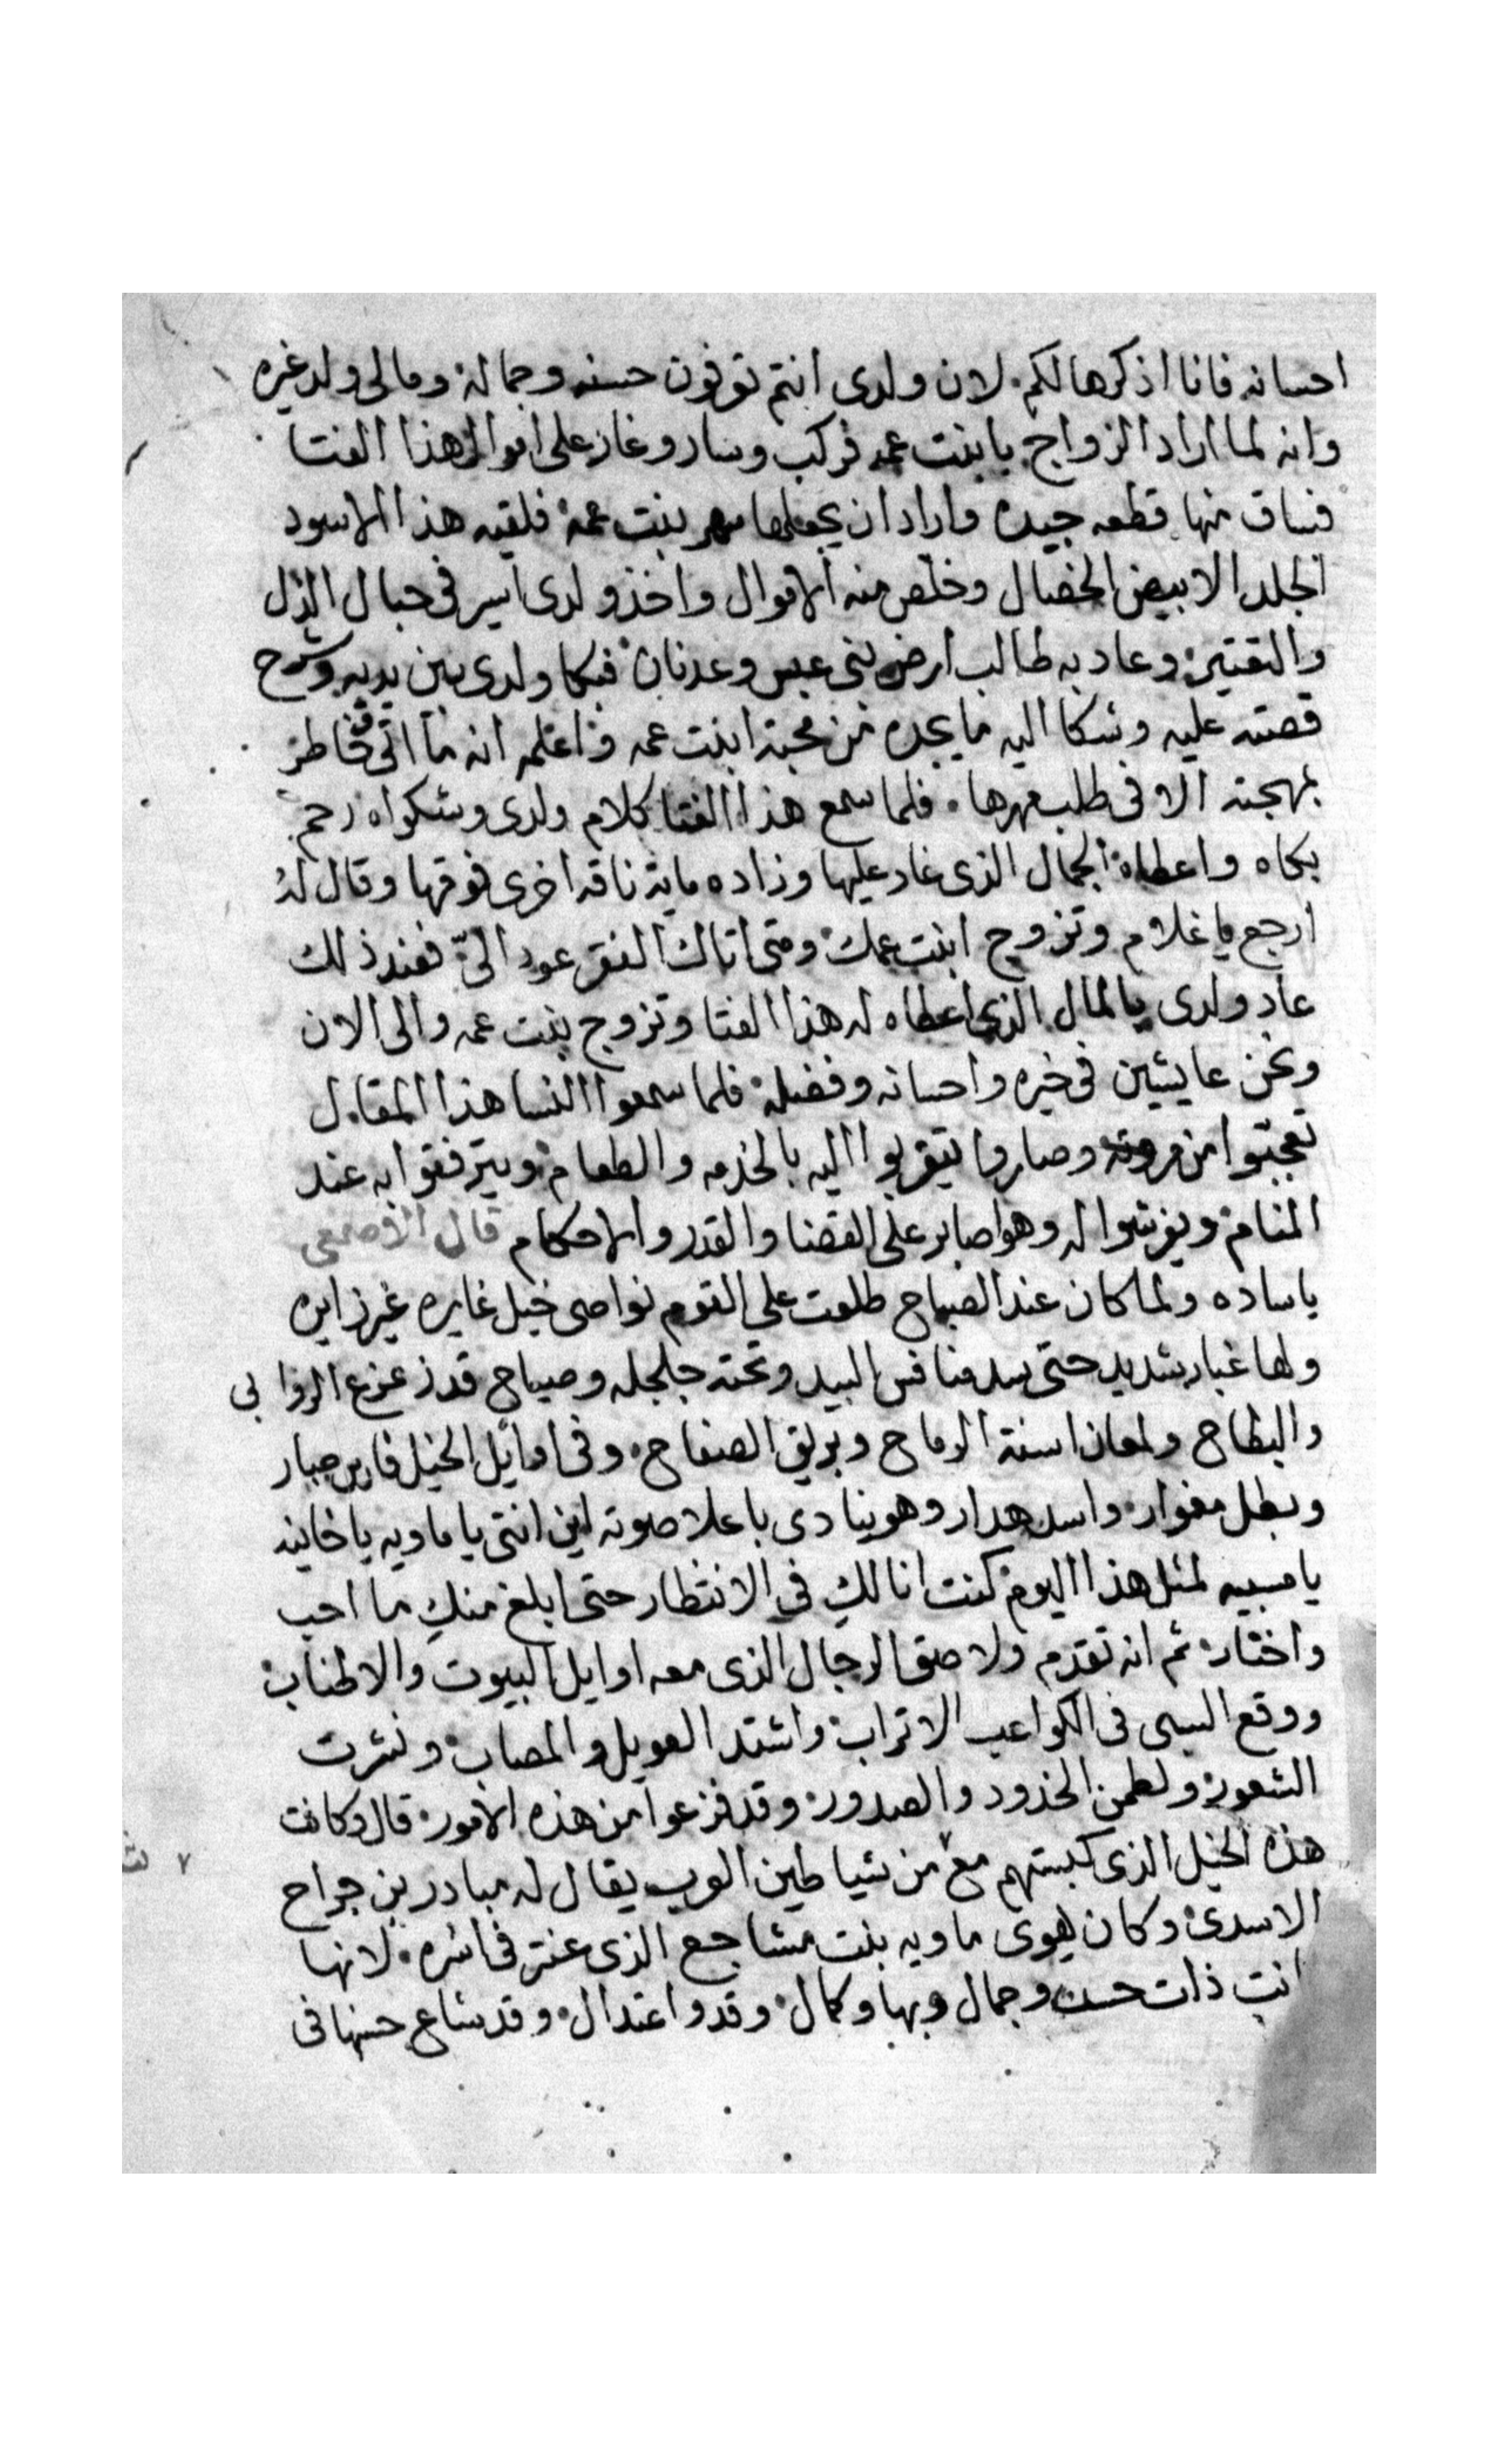 احسانه فانا اذكرها لكم لان ولدى انتم توفون حسنه وجماله ومالى ولد غيره
وانه لما اراد الزواج بابنت عمه فركب وسار وغار على اموال هذا الفتا
فساق منها قطعه جيده واراد ان يجعلها مهر بنت عمه فلقيه هذا الاسود
الجلد الابيض الخصال وخلص منه الاموال واخذ ولدى اسير فى حبال الذل
والتقتير وعاد به طالب ارض بنى عبس وعدنان فبكا ولدى بين يديه وشرح
قصته عليه وشكا اليه ما يجده من محبة ابنت عمه واعلمه انه ما اتى وخاطر
بمهجته الا فى طلب مهرها فلما سمع هذا الفتا كلام ولدى وشكواه رحم
بكاه واعطاه الجمال الذى غار عليها وزاده ماية ناقه اخرى فوقها وقال له
ارجع يا غلام وتزوج ابنت عمك ومتى اتاك الفقر عود الىّ فعند ذلك
عاد ولدى بالمال الذى اعطاه له هذا الفتا وتزوج بنت عمه والى الان
ونحن عايشين فى خيره واحسانه وفضله فلما سمعوا النسا هذا المقال
تعجبّوا من مروته وصاروا يتقربوا اليه بالخدمه والطعام ويترفقوا به عند
المنام ويفرشوا له وهو صابر على القضا والقدر والاحكام قال الاصمعى
ياساده ولما كان عند الصباح طلعت على القوم نواصى خيل غايره غير زايره
ولها غبار شديد حتى سد منافس البيد وتحته جلجله وصياح قد زعزع الروابى
والبطاح ولمعان اسنة الرماح وبريق الصفاح وفى اوايل الخيل فارس جبار
وبطل مغوار واسد هدار وهو ينادى باعلا صوته اين انتى يا ماويه يا خاينه
يا مسبيه لمثل هذا اليوم كنت انا لكِ فى الانتظار حتى ابلغ منكِ ما احب
واختار ثم انه تقدم ولاصق الرجال الذى معه اوايل البيوت والاطناب
ووقع السبى فى الكواعب الاتراب واشتد العويل والمصاب ونشرت
الشعور ولطمن الخدود والصدور وقد فزعوا من هذه الامور قال وكانت
هذه الخيل الذى كبستهم مع من شياطين العرب يقال له مبادر بن جراح
الاسدى وكان يهوى ماويه بنت مشاجع الذى عنتر فى اسره لانها
انت ذات حسن وجمال وبها وكمال وقد واعتدال وقد شاع حسنها فى